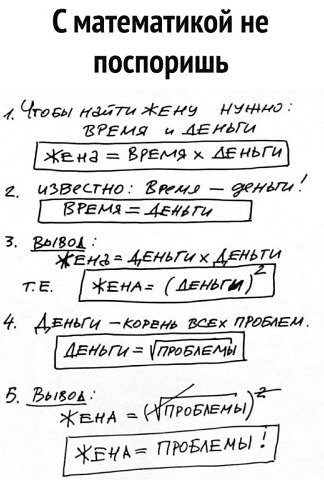 С математикой не
поспоришь
1. Чтобы найти жену нужно:
время и деньги
Жена = время x деньги
2. известно: Время – деньги!
Время = деньги
3. Вывод:
Жена = деньги x деньги
т.е. Жена = (деньги)²
4. Деньги – корень всех проблем.
Деньги = √проблемы
5. Вывод:
Жена = (√проблемы)²
Жена = проблемы!